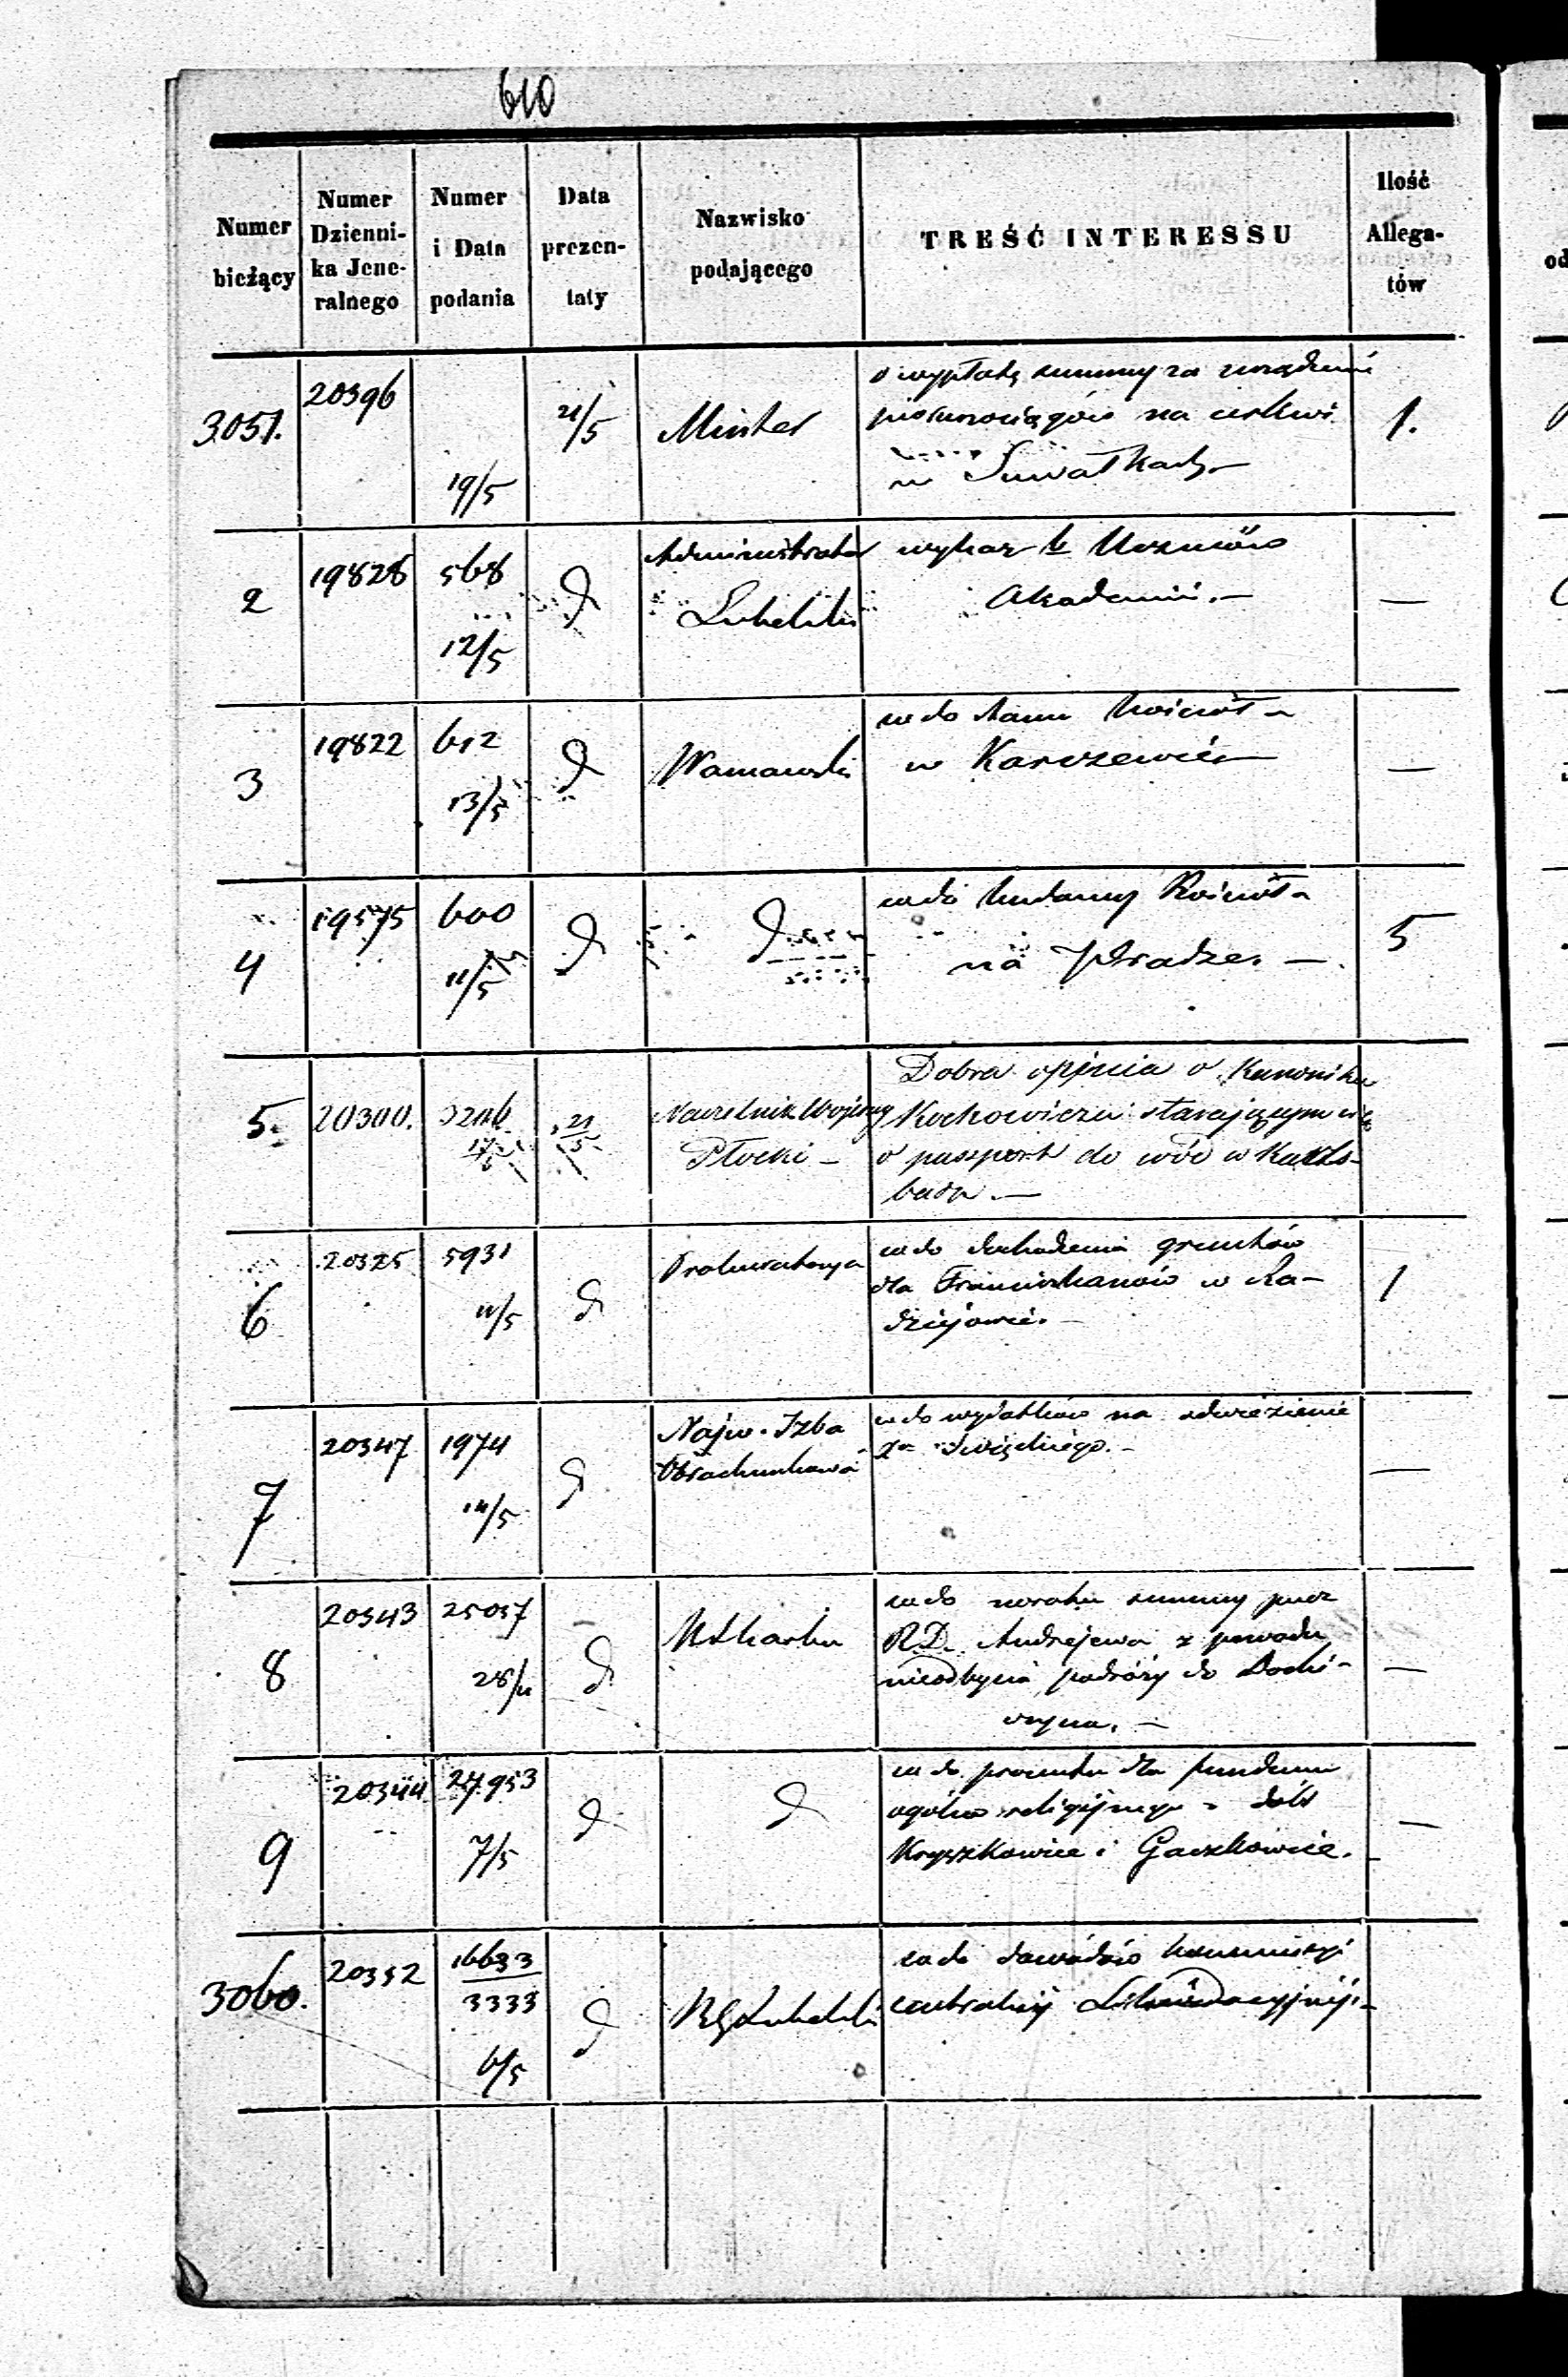 610
Numer bieżący
Numer Dzienni-ka Jene-ralnego
Numer i Data podania
Data prezen-taty
Nazwisko podającego
TREŚĆ INTERESSU
Ilość Allega-tów
3051.
20396
19/5
21/5
Minter
o wypłatę summy za urządzenie
piorunociągów na cerkwi
w Suwałkach
1.
2
19828
568
12/5
d
Administrator
Lubelski
wykaz Uczniów
Akademii. —
—
3
19822
612
13/5
d
Warszawski
co do stanu Kościoła
w Karczewie —
—
4
19575
600
11/5
d
d
co do budowy Kościoła
na Pradze. —
5
5.
20300.
21/5
Naczelnik Wojenny
Płocki —
Dobra opinia o Kanoniku
Kochowiczu starającym się
o paszport do wód w Karls-
badzie. —
6
20325
5931
11/5
d
Prokuratorya
co do dochodzenia gruntów
dla Franciszkanów w Ra-
dziejowie. —
1
7
20347
1974
14/5
d
Najw. Izba
Obrachunkowa
co do wydatków na odwiezienie
Xa Święckiego. —
—
8
20343
25037
28/4
d
K Skarbu
co do zwrotu summy przez
R.D. Andrejewa z powodu
nieodbycia podróży do
—
9
20344
27953
7/5
d
d
co do procentu dla funduszu
ogólno religijnego z dóbr
Kryszkowice i Gaczkowice.
—
3060.
20352
16633
3333
6/5
d
RG Lubelski
co do dowodów Kommissyi
centralnej Likwidacyjnej. —